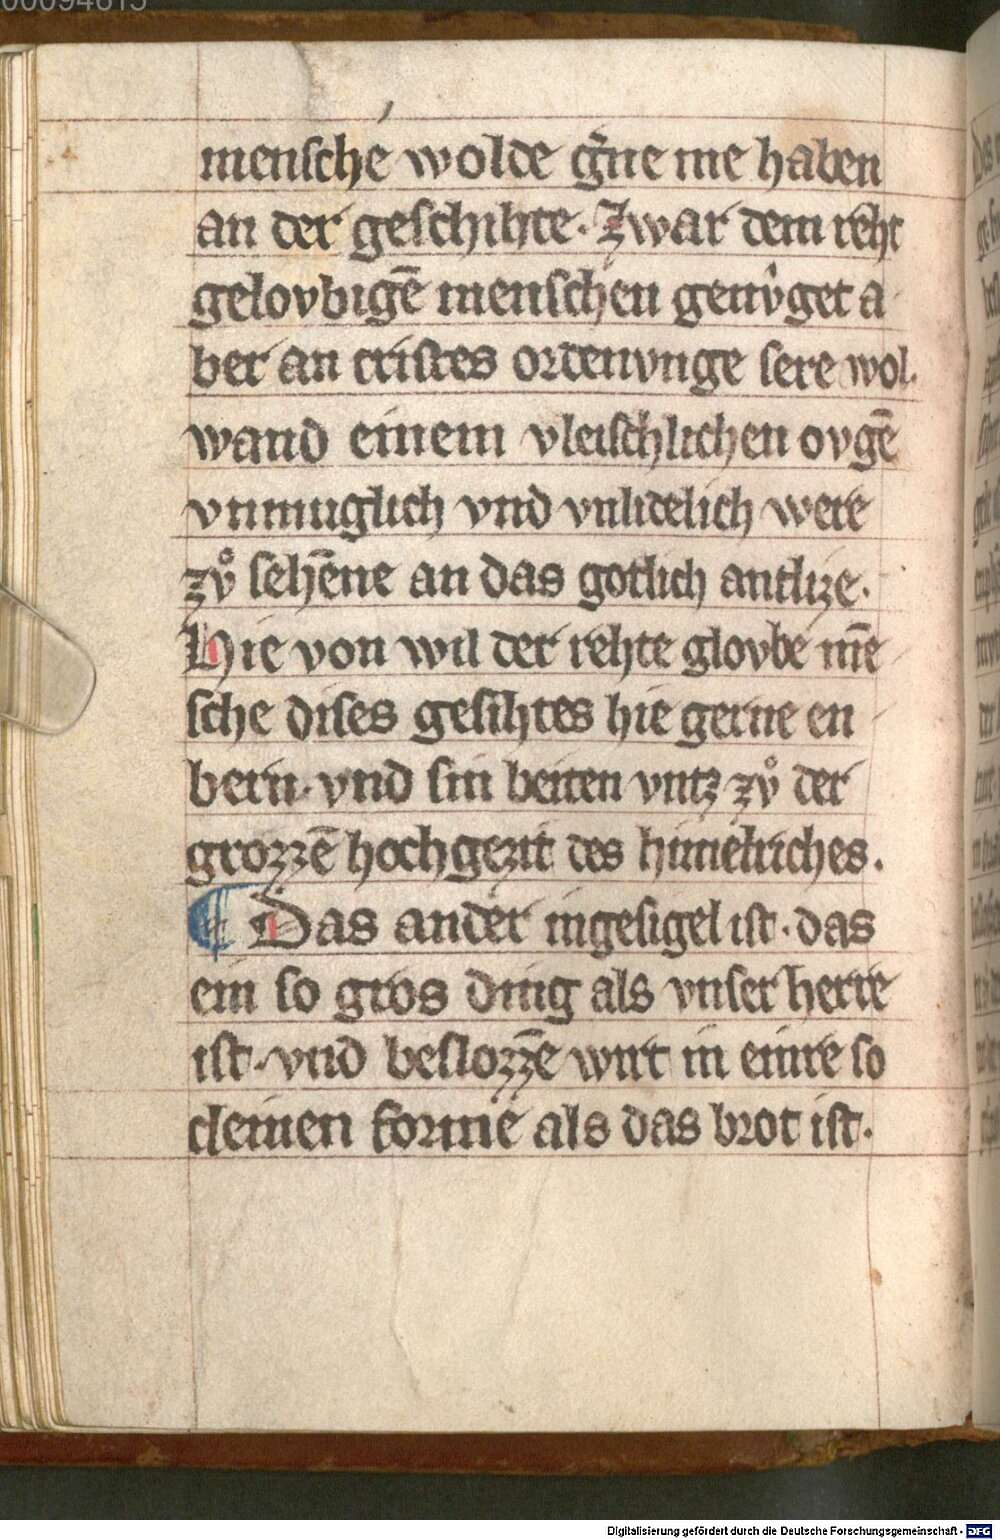 00094815
mensche wolde g̃ne me haben
an der geschihte. Zwar dem reht
gelovbigē menschen genvͤget a
ber an cristes ordenvnge sere wol.
wand einem vleischlichen ovgē
vnmuglich vnd vnlidelich were
zvͦ sehēne an das gotlich antlize.
Hie von wil der rehte glovbe mē
sche dises gesihtes hie gerne en
bern. vnd sin beiten vntz zvͦ der
grozzē hochgezit des himelriches.
¶ Das ander ingesigel ist. das
ein so gros ding als vnser herre
ist. vnd beslozzē wirt in einre so
cleinen forme als das brot ist.
Digitalisierung gefördert durch die Deutsche Forschungsgemeinschaft - DFG